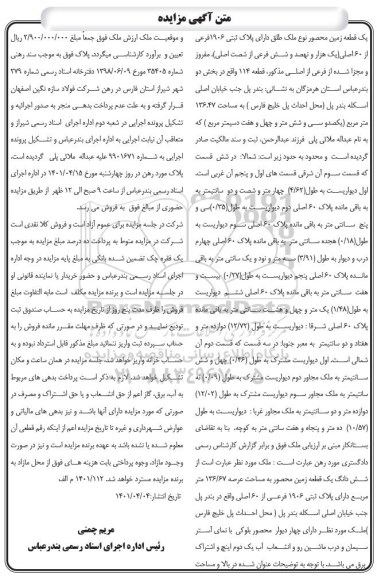 متن آگهی مزایده
یک قطعه زمین محصور نوع ملک طلق دارای پلاک ثبتی ۱۹۰۶فرعی
از ۶۰ اصلی(یک هزار و نهصد و شش فرعی از شصت اصلی)، مفروز
و مجزا شده از فرعی از اصلی مذکور، قطعه ۱۱۴ واقع در بخش دو
بندرعباس استان هرمزگان به نشانی: بندر پل جنب خیابان اصلی
اسکله بندر پل (محل احداث پل خلیج فارس ) به مساحت ۱۳۶.۴۷
متر مربع (یکصدو سی و شش متر و چهل و هفت دسیمتر مربع ) که
به نام عبداله ملائی پلی فرزند عبدالرحمن، ثبت و سند مالکیت صادر
گردیده است و محدود به حدود زیر است: شمالا: در شش قسمت
که قسمت سوم آن شرقی قسمت های اول و پنجم آن غربی است.
اول دیواریست به طول(۴/۶۲) چهار متر و شصت و دو سانتیمتر به
باقی مانده پلاک ۶۰ اصلی دوم دیواریست به طول(۰/۳۵)سی و
پنج سانتی متر به باقی مانده پلاک ۶۰ اصلی سوم دیواریست به
طول(۰/۱۸) هجده سانتی متر به باقی مانده پلاک ۶۰ اصلی چهارم
درب و دیوار به طول (۳/۹۱) سه متر و نود و یک سانتی متر به باقی
مانده پلاک ۶۰ اصلی پنجم دیواریست به طول(۰/۲۷) بیست و
هفت سانتی متر به باقی مانده پلاک ۶۰ اصلی ششم دیواریست
به طول(۱/۴۸) یک متر و چهل و هشت سانتی متر به باقی مانده
پلاک ۶۰ اصلی شرقا : دیواریست به طول (۱۲/۷۲) دوازده متر و
هفتاد و دو سانتیمتر به معبر جنوبا: در سه قسمت که قسمت دوم آن
شمالی است، اول دیواریست مشترک به طول (۰/۴۶) چهل و شش
سانتیمتر به ملک مجاور دوم دیواریست مشترک به طول (۰/۰۹) نه
سانتیمتر به ملک مجاور سوم دیواریست مشترک به طول (۱۲/۰۲)
دوازده متر و دو سانتیمتر به ملک مجاور غربا : دیواریست به طول
(۱۰/۵۷) ده متر و پنجاه و هفت سانتی متر به کوچه، بنا به تقاضای
بستانکار مبنی بر ارزیابی ملک فوق و برابر گزارش کارشناس رسمی
دادگستری مورد رهن عبارت است : ملک مورد نظر عبارت است از
شش دانگ یک قطعه زمین محصور به مساحت عرصه ۱۳۶/۶۷ متر
مربع دارای پلاک ثبتی ۱۹۰۶ فرعی از ۶۰ اصلی واقع در بندر پل
جنب خیابان اصلی اسکله بندر پل ( محل احداث پل خلیج فارس
)ملک مورد نظر دارای چهار دیوار محصور بلوکی با نمای آستر
سیمان و درب ماشین رو و انشعاب آب یک دوم اینچ و اشتراک
برق می باشد، با توجه به توضیحات عنوان شده در بالا و مساحت
و موقعیت ملک ارزش ملک فوق جمعاً مبلغ ۲/۹۰۰/۰۰۰/۰۰۰ ریال
تعیین و برآورد کارشناسی میگردد. پلاک فوق به موجب سند رهنی
شماره ۳۵۴۰۵ مورخ ۱۳۹۸/۰۶/۰۹ دفترخانه اسناد رسمی شماره ۳۷۹
شهر شیراز استان فارس در رهن شرکت فولاد سازه نگین اصفهان
قرار گرفته و به علت عدم پرداخت بدهی منجر به صدور اجرائیه و
تشکیل پرونده اجرایی در شعبه دوم اداره اجرای اسناد رسمی شیراز و
متعاقب آن نیابت اجرایی به اداره اجرای بندرعباس و تشکیل پرونده
اجرایی به شماره ۹۹۰۱۶۷۱ علیه عبداله ملائی پلی گردیده است.
پلاک مورد رهن در روز چهارشنبه مورخ ۱۴۰۱/۰۴/۱۵ در اداره اجرای
اسناد رسمی بندرعباس از ساعت ۹ صبح الی ۱۲ ظهر از طریق مزایده
حضوری از مبالغ فوق به فروش می رسد.
شرکت در جلسه مزایده برای عموم آزاد است و فروش کلا نقدی است
شرکت در مزایده منوط به پرداخت ده درصد مبلغ مزایده به موجب
یک فقره چک تضمین شده بانکی به مبلغ پایه مزایده در وجه اداره
اجرای اسناد رسمی بندرعباس و حضور خریدار یا نماینده قانونی او
در جلسه مزایده است و برنده مزایده مکلف است مابه التفاوت مبلغ
فروش را ظرف مدت پنج روز از تاریخ مزایده به حساب صندوق ثبت
تودیع نمایند و در صورتی که ظرف مهلت مقرر مانده فروش را به
حساب سپرده ثبت واریز ننماید مبلغ مذکور قابل استرداد نبوده و به
حساب خزانه واریز خواهد شد. جلسه مزایده در همان ساعت و مکان
تشکیل خواهد شد. لازم به ذکر است پرداخت بدهی های مربوط
به آب، برق، گاز اعم از حق انشعاب و یا حق اشتراک و مصرف در
صورتی که مورد مزایده دارای آنها باشد و نیز بدهی های مالیاتی و
عوارض شهرداری و غیره تا تاریخ مزایده اعم از اینکه رقم قطعی آن
معلوم شده یا نشده باشد به عهده برنده مزایده است و نیز در صورت
وجود مازاد، وجوه پرداختی بابت هزینه های فوق از محل مازاد به
برنده مزایده مسترد خواهد شد. ۱۴۰۱/۱۱۲ م الف
تاریخ انتشار:۱۴۰۱/۰۴/۰۴
مریم چمنی
رئیس اداره اجرای اسناد رسمی بندرعباس